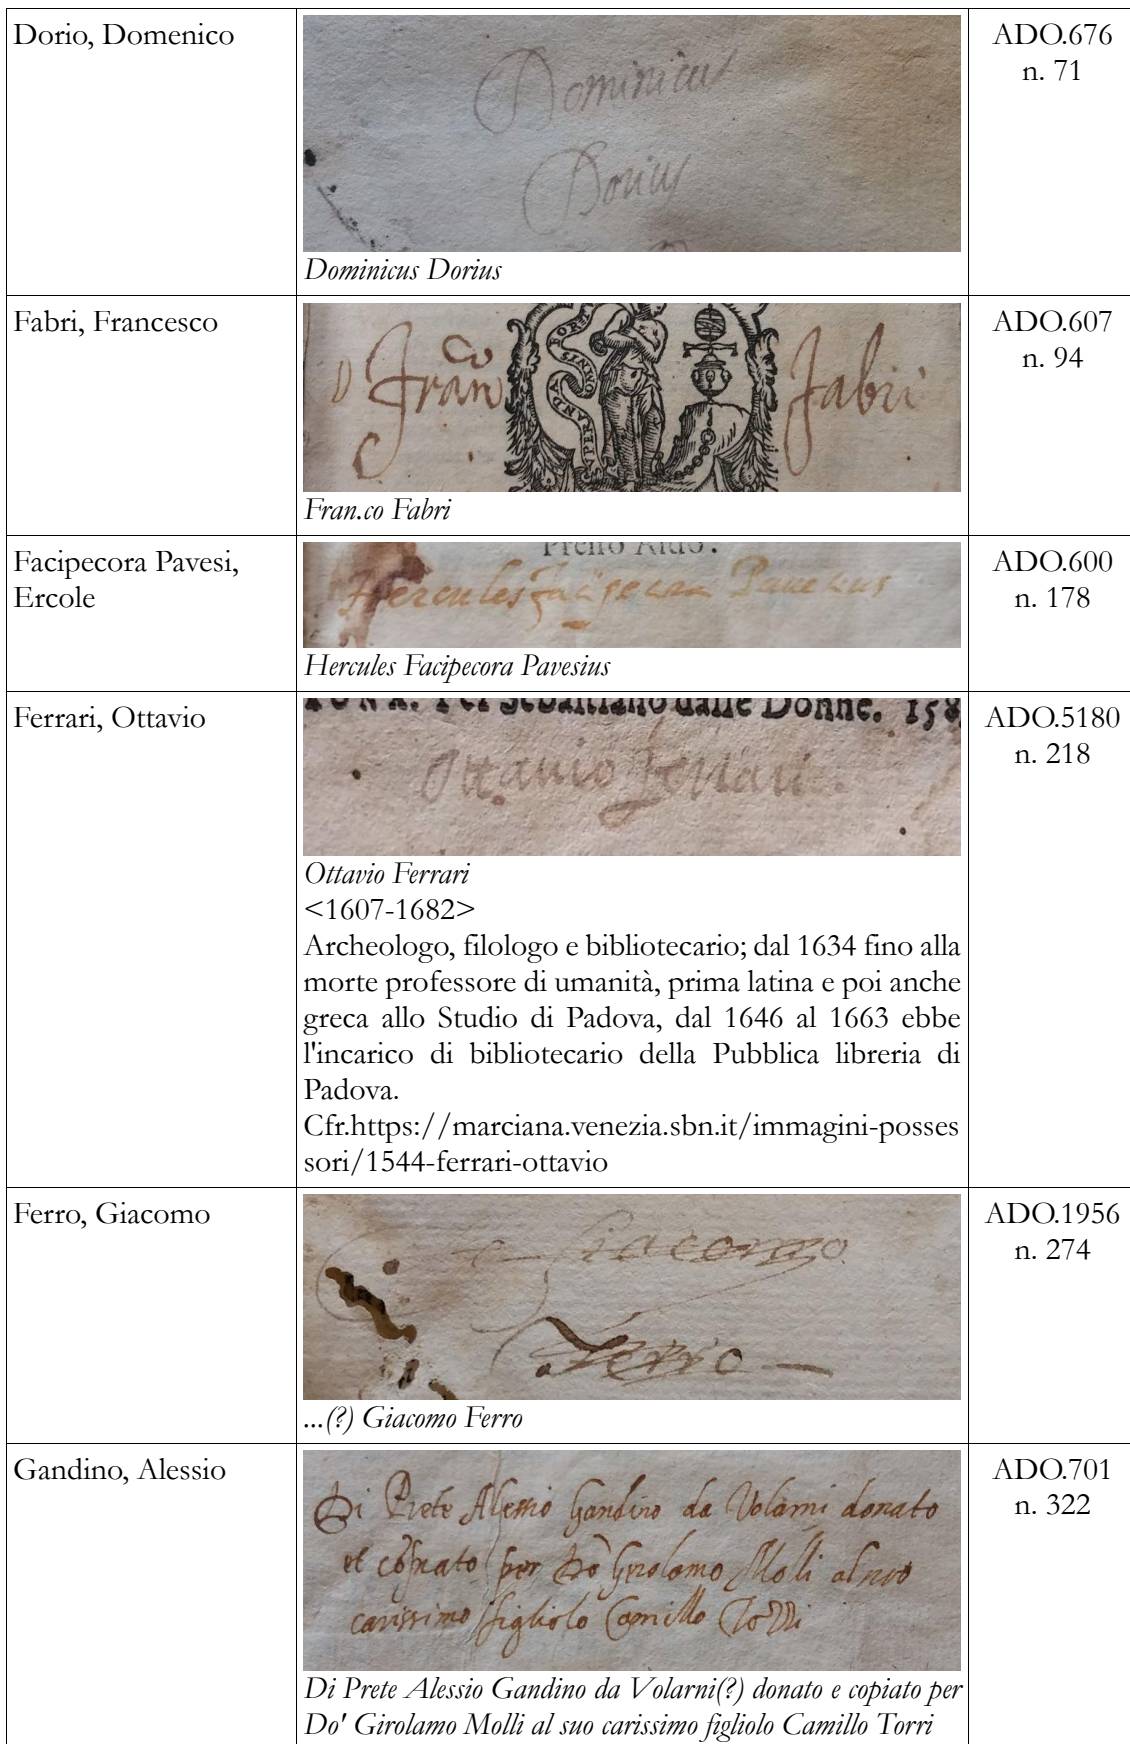 Dorio, Domenico
Dominicus
Dorius
Dominicus Dorius
ADO.676
n. 71
Fabri, Francesco
D Fran.co Fabri
SUPERANDA OMNIS FORT
Fran.co Fabri
ADO.607
n. 94
Facipecora Pavesi,
Ercole
Presso Aldo.
Hercules Facipecora Pavesius
Hercules Facipecora Pavesius
ADO.600
n. 178
Ferrari, Ottavio
Per Sebastiano dalle Donne. 158
Ottauio Ferrari.
Ottavio Ferrari
<1607-1682>
Archeologo, filologo e bibliotecario; dal 1634 fino alla
morte professore di umanità, prima latina e poi anche
greca allo Studio di Padova, dal 1646 al 1663 ebbe
l'incarico di bibliotecario della Pubblica libreria di
Padova.
Cfr.https://marciana.venezia.sbn.it/immagini-posses
sori/1544-ferrari-ottavio
ADO.5180
n. 218
Ferro, Giacomo
Giacomo
Ferro
...(?) Giacomo Ferro
ADO.1956
n. 274
Gandino, Alessio
Di Prete Alessio Gandino da donato
et per Do Girolamo Molli al suo
carissimo figliolo Camillo Torri
Di Prete Alessio Gandino da Volarni(?) donato e copiato per
Do' Girolamo Molli al suo carissimo figliolo Camillo Torri
ADO.701
n. 322